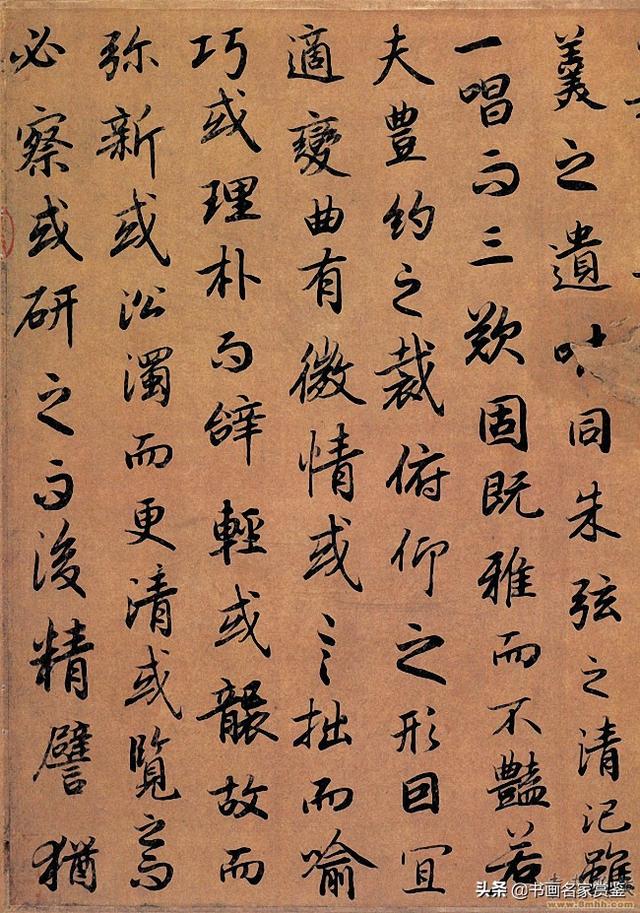 羹之遺同朱弦之清汜雖
一唱而三歎固既雅而不豔若
夫豐約之裁俯仰之形因宜
適變曲有微情或言拙而喻
巧或理朴而辭輕或襲故而
弥新或沿濁而更清或覽之而
必察或研之而後精譬猶
头条 @书画名家赏鉴
www.8mhh.com